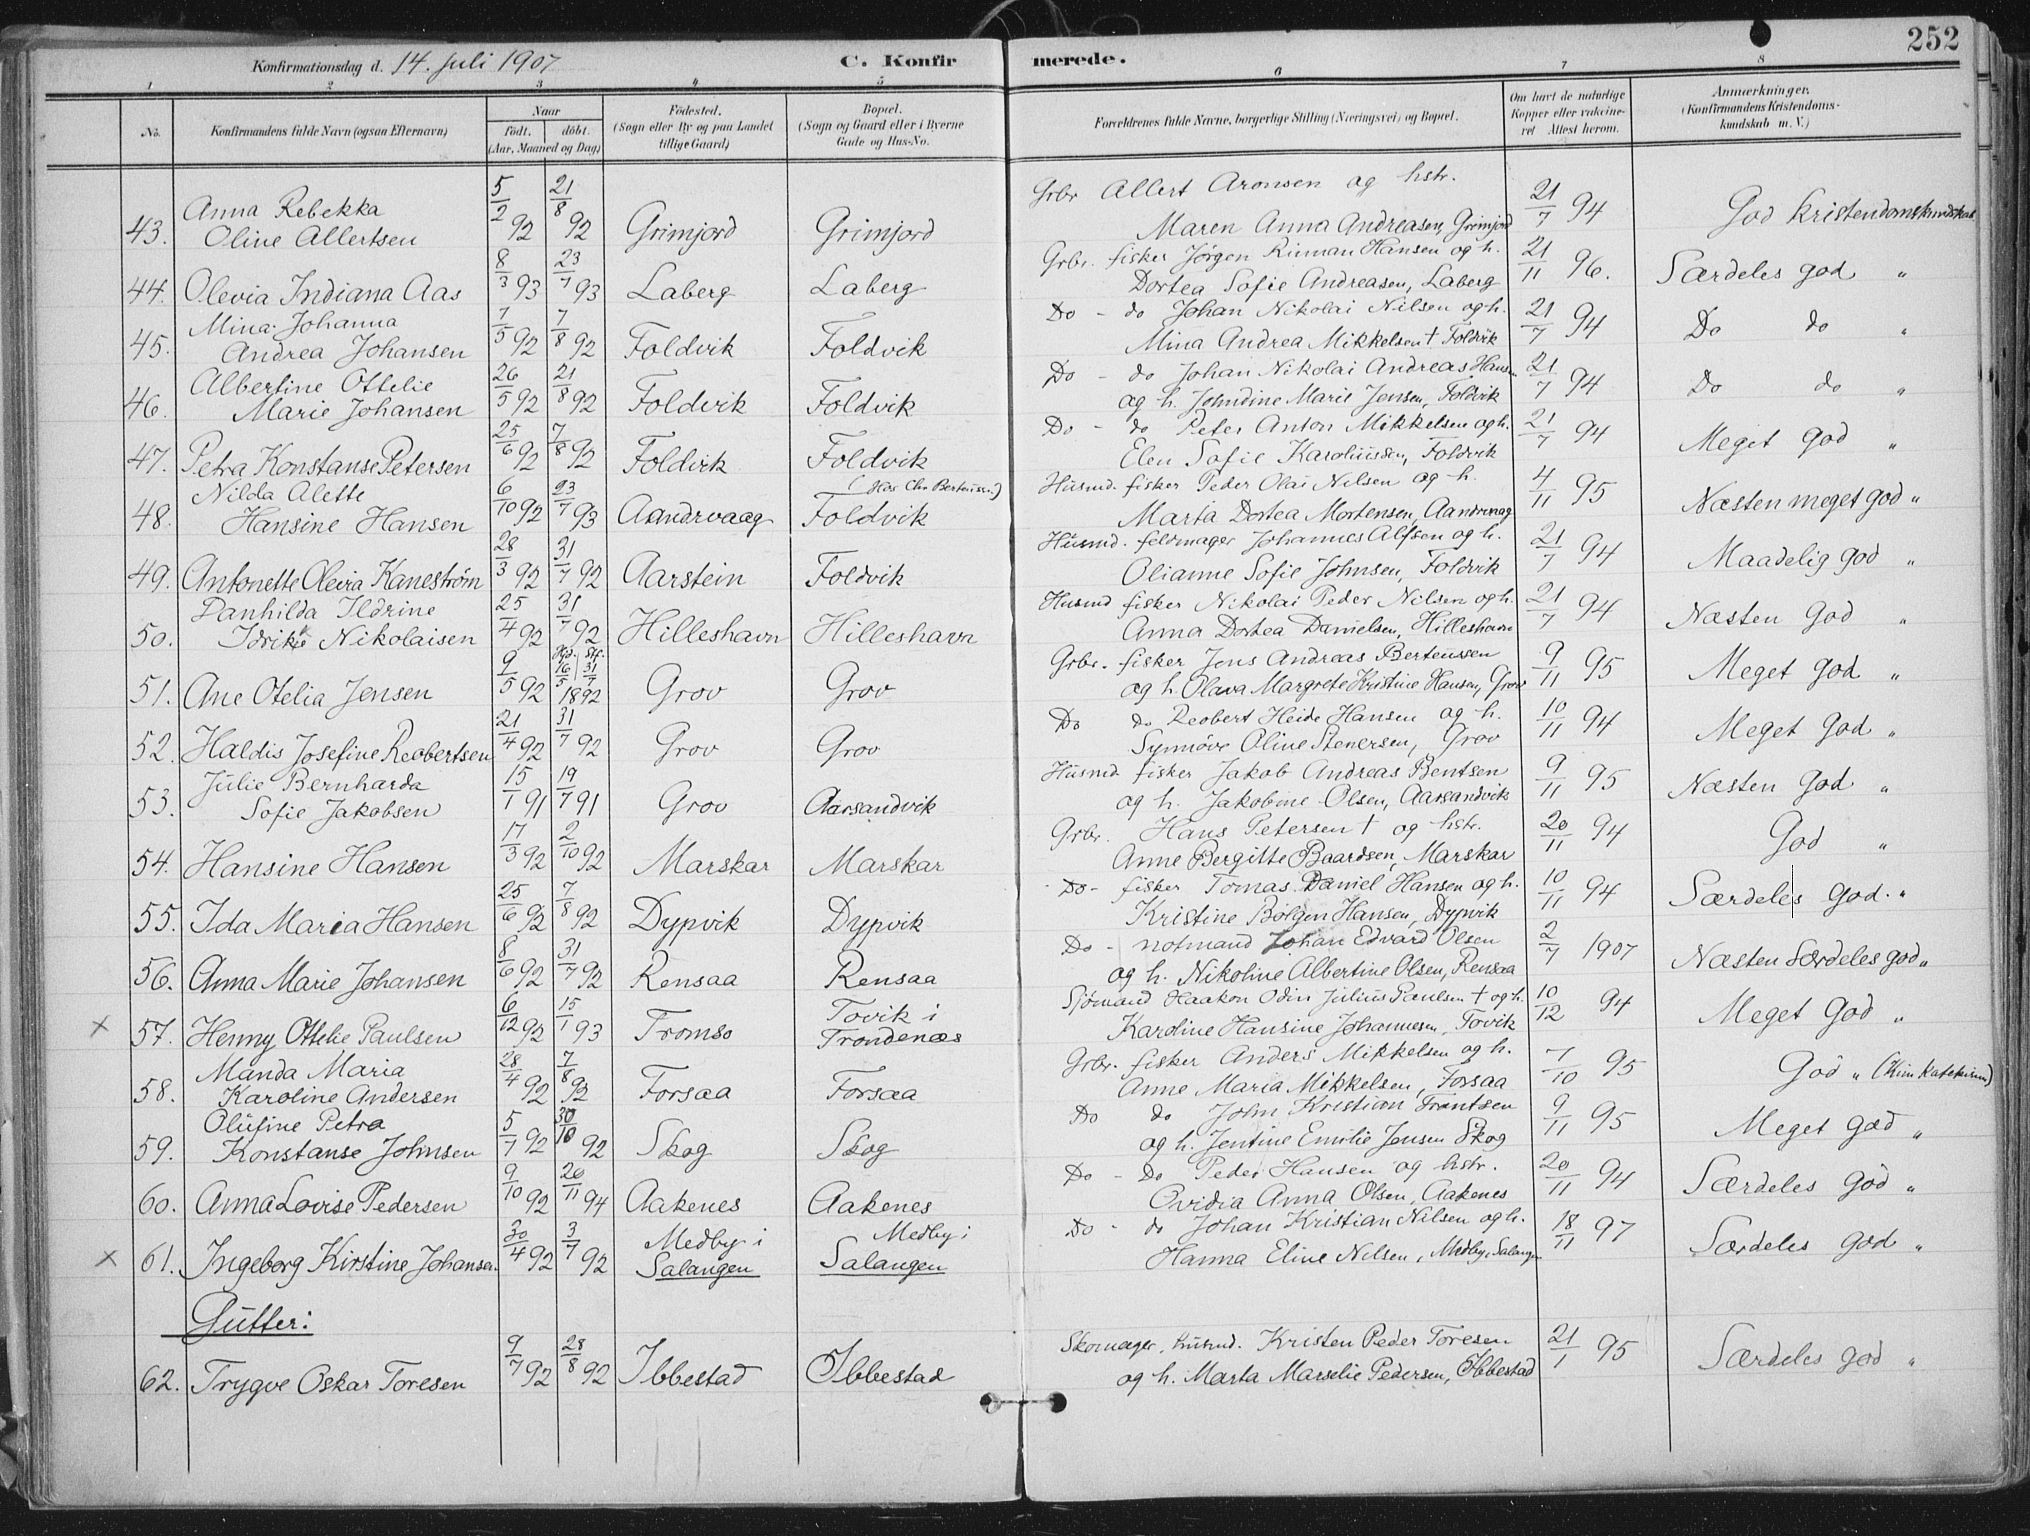 252
Konfirmationsdag d. 14. Juli 1907
C. Konfirmerede.
1 2 3 4 5 6 7 8
No. Konfirmandens fulde Navn (ogsaa Efternavn) Naar født. døbt. (Aar, Maaned og Dag) Fødested. (Sogn eller By og paa Landet tillige Gaard) Bopæl. (Sogn og Gaard eller i Byerne Gade og Hus-No. Forældrenes fulde Navne, borgerlige Stilling (Næringsvei) og Bopæl. Om havt de naturlige Kopper eller vakcineret Attest herom. Anmærkninger. (Konfirmandens Kristendomskundskab m. V.)
43. Anna Rebekka Oline Allertsen 5/2 92 21/8 92 Grimjord Grimjord Grbr. Allert Aronsen og hstr. Maren Anna Andreasen, Grimjord 21/7 94 God Kristendomskundskab
44. Olevia Indiana Aas 8/3 93 23/7 93 Laberg Laberg Grbr. fisker Jørgen Rinnan Hansen og h. Dortea Sofie Andreasen, Laberg 21/11 96. Særdeles god "
45. Mina Johanna Andrea Johansen 7/5 92 7/8 92 Foldvik Foldvik Do - do Johan Nikolai Nilsen og h. Mina Andrea Mikkelsen † Foldvik 21/7 94 Do do "
46. Albertine Ottelie Marie Johansen 26/5 92 21/8 92 Foldvik Foldvik Do - do Johan Nikolai Andreas Hansen og h. Johndine Marie Jensen, Foldvik 21/7 94 Do do "
47. Petra Konstanse Petersen 25/6 92 7/8 92 Foldvik Foldvik Do - do Peter Anton Mikkelsen og h. Elen Sofie Karoliusdn, Foldvik 21/7 94 Meget god "
48. Nilda Alette Hansine Hansen 6/10 92 23/7 93 Aandrvaag (Hos Chr Berteussen) Foldvik Husmd. fisker Peder Olai Nilsen og h. Marta Dortea Mortensen, Aandrvaag 4/11 95 Næsten meget god "
49. Antonette Olevia Kanestrøm 28/3 92 31/7 92 Aarstein Foldvik Husmd. feldmager Johannes Alfsen og h. Olianne Sofie Johnsen, Foldvik 21/7 94 Maadelig god "
50. Danhilda Ildrine Idrikke Nikolaisen 25/4 92 31/7 92 Hilleshavn Hilleshavn Husmd fisker Nikolai Peder Nilsen og h. Anna Dortea Danielsen, Hilleshavn 21/7 94 Næsten God "
51. Ane Otelia Jensen 9/5 92 Hjd. 16/5 Stf. 31/7 1892 Grov Grov Grbr. fisker Jens Andreas Berteussen og h. Olava Margrete Kristine Hansen, Grov 9/11 95 Meget god "
52. Haldis Josefine Reobertsen 21/4 92 31/7 92 Grov Grov Do do Reobert Heide Hansen og h. Synnøve Oline Stenersen, Grov 10/11 94 Meget God "
53. Julie Bernharda Sofie Jakobsen 15/1 91 19/7 91 Grov Aarsandvik Husmd. fisker Jakob Andreas Bentsen og h. Jakobine Olsen, Aarsandvik 9/11 95 Næsten God "
54. Hansine Hansen 17/3 92 2/10 92 Marskar Marskar Grbr. Hans Petersen † og hstr. Anne Bergitte Baardsen, Marskar 20/11 94 God "
55. Ida Maria Hansen 25/6 92 7/8 92 Dypvik Dypvik - Do - fisker Tomas Daniel Hansen og h. Kristine Bolgen Hansen, Dypvik 10/11 94 Særdeles God. "
56. Anna Marie Johansen 8/6 92 31/7 92 Rensaa Rensaa Do - notmand Johan Edvard Olsen og h. Nikoline Albertine Olsen, Rensaa 2/7 1907 Næsten Særdeles god "
× 57. Henny Ottelie Paulsen 6/12 92 15/1 93 Tromsø Tovik i Trondenæs Sjømand Haakon Odin Julius Paulsen † og h. Karoline Hansine Johannesen, Tovik 10/12 94 Meget God "
58. Manda Maria Karoline Andersen 28/4 92 7/8 92 Forsaa Forsaa Grbr. fisker Anders Mikkelsen og h. Anne Maria Mikkelsen, Forsaa 7/10 95 God "
59. Olufine Petra Konstanse Johnsen 5/7 92 30/10 92 Skog Skog Do do John Kristian Trontsen og h. Jentine Emilie Jensen Skog 9/11 95 Meget God "
60. Anna Lovise Pedersen 9/10 92 26/11 94 Aakenes Aakenes Do - Do Peder Hansen og hstr. Ovidia Anna Olsen, Aakenes 20/11 94 Særdeles God "
× 61. Ingeborg Kirstine Johansen. 30/4 92 3/7 92 Medby i Salangen Medby i Salangen Do - do Johan Kristian Nilsen og h. Hanna Eline Nilsen, Medby, Salangen 18/11 97 Særdeles God "
Gutter:
62. Trygve Oskar Toresen 9/7 92 28/8 92 Ibbestad Ibbestad Skomager, husmd. Kristen Peder Toresen og h. Marta Marselie Pedersen, Ibbestad 21/1 95 Særdeles god "